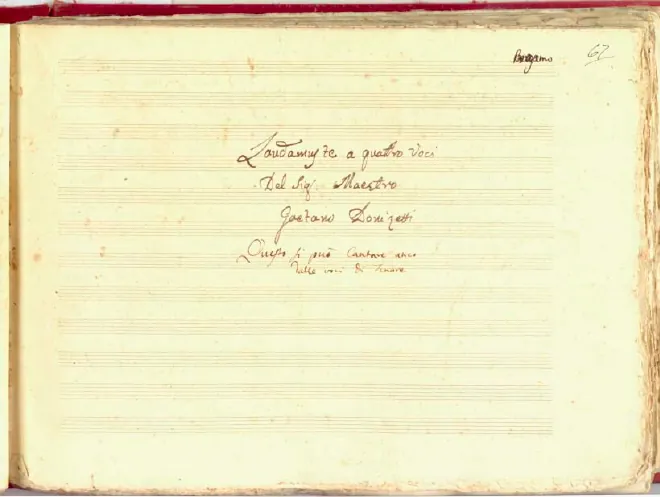 Bergamo
67
Laudamus te a quattro voci
Del Sigr. Maestro
Gaetano Donizetti
Questo si può Cantare anco
dalle voci di Tenore